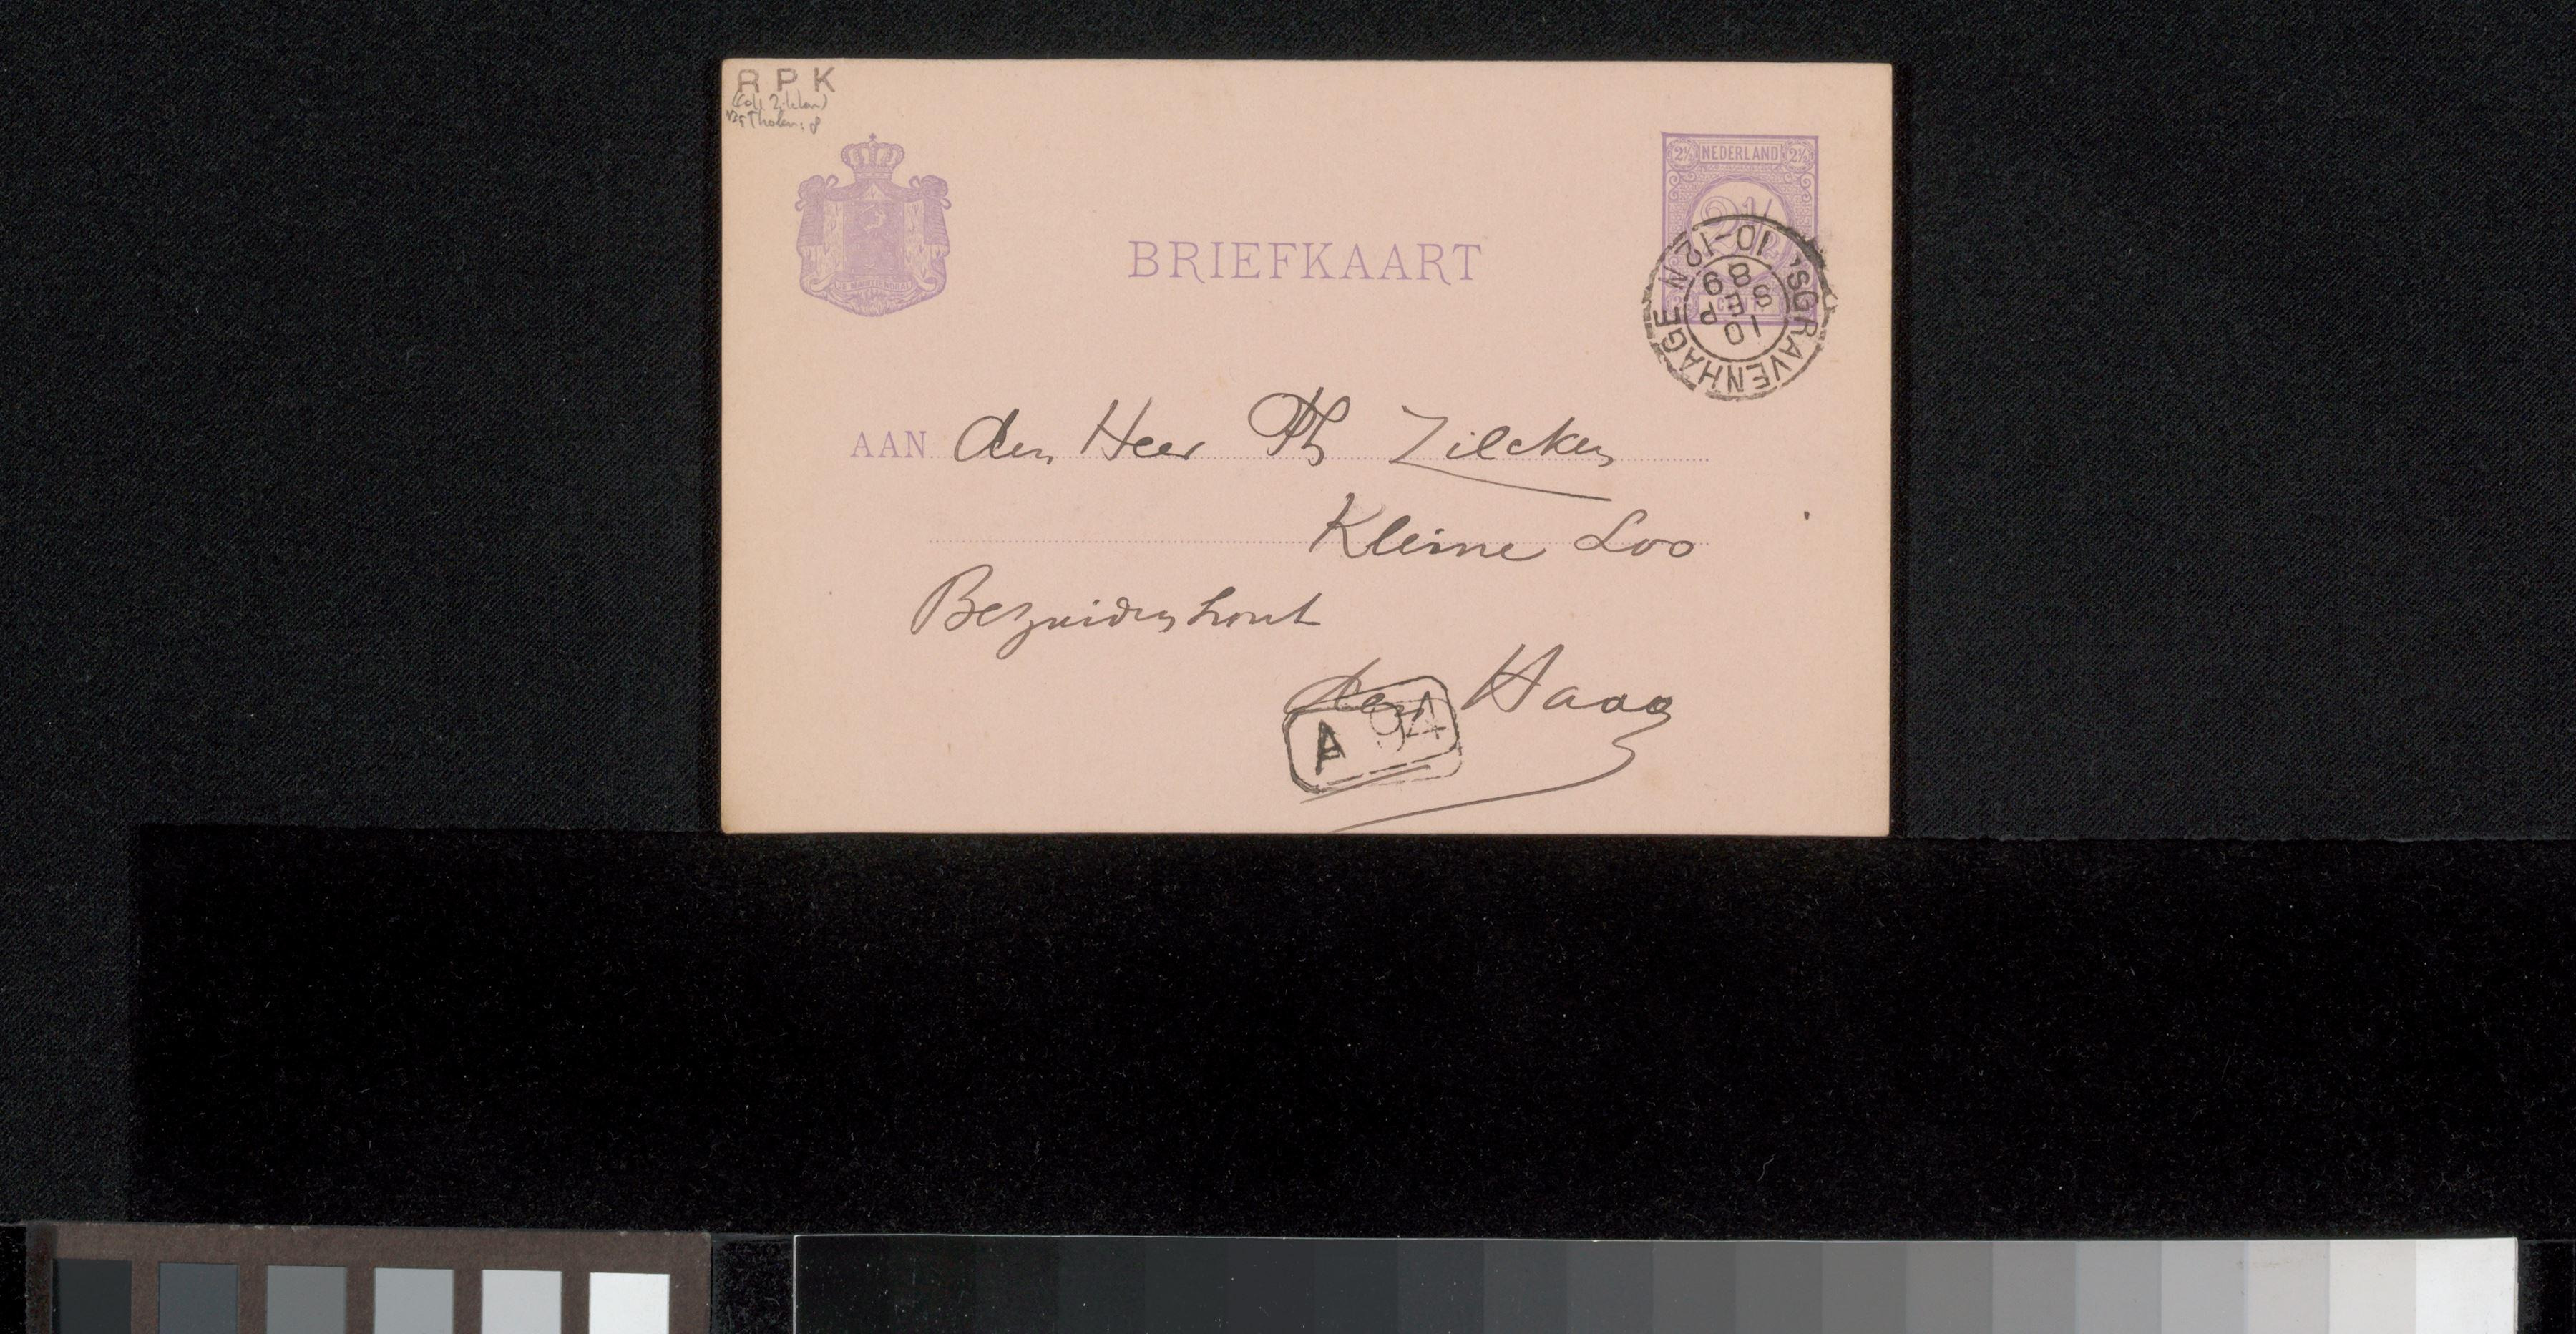 R P K
(Coll. Zilcken)
Tholen: 8
2½ NEDERLAND 2½
2½
JE MAINTIENDRAI
BRIEFKAART
'SGRAVENHAGE
10-12 N
10
SEP
89
AAN den Heer Ph Zilcken
Kleine Loo
Bezuidenhout
den Haag
A 94